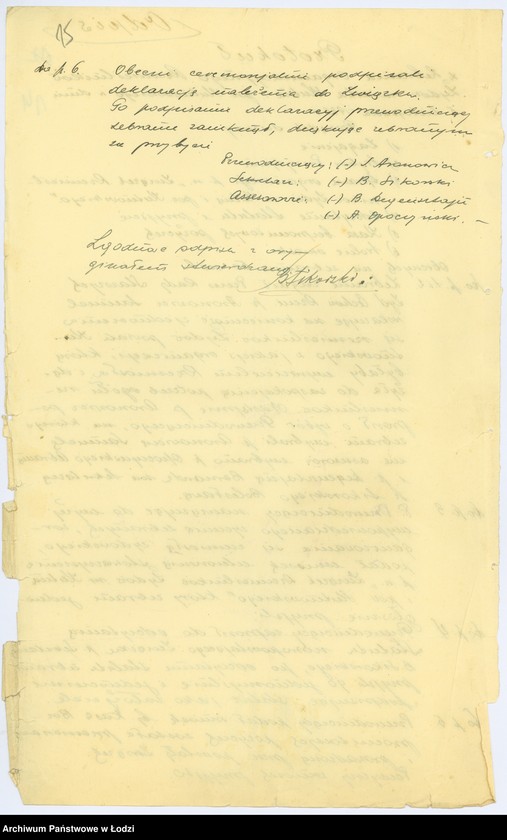 15
do p. 6. Obecni ceremonjalnie podpisali
deklarację należenia do Związku.
Po podpisaniu deklaracyj przewodniczący
zebranie zamknął, dziękując zebranym
za przybycie
Przewodniczący: (-) S. Aronowicz
Sekretarz: (-) B. Sikorski
Assesorowie: (-) B.
(-) A. Opoczyński. —
Zgodność odpisu z ory-
ginałem stwierdzam
B. Sikorski
Archiwum Państwowe w Łodzi